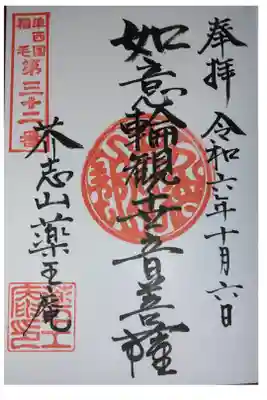 奉拝 令和六年十月六日
如意輪観世音菩薩
準西国
稲毛
第三十二番
志山薬王庵